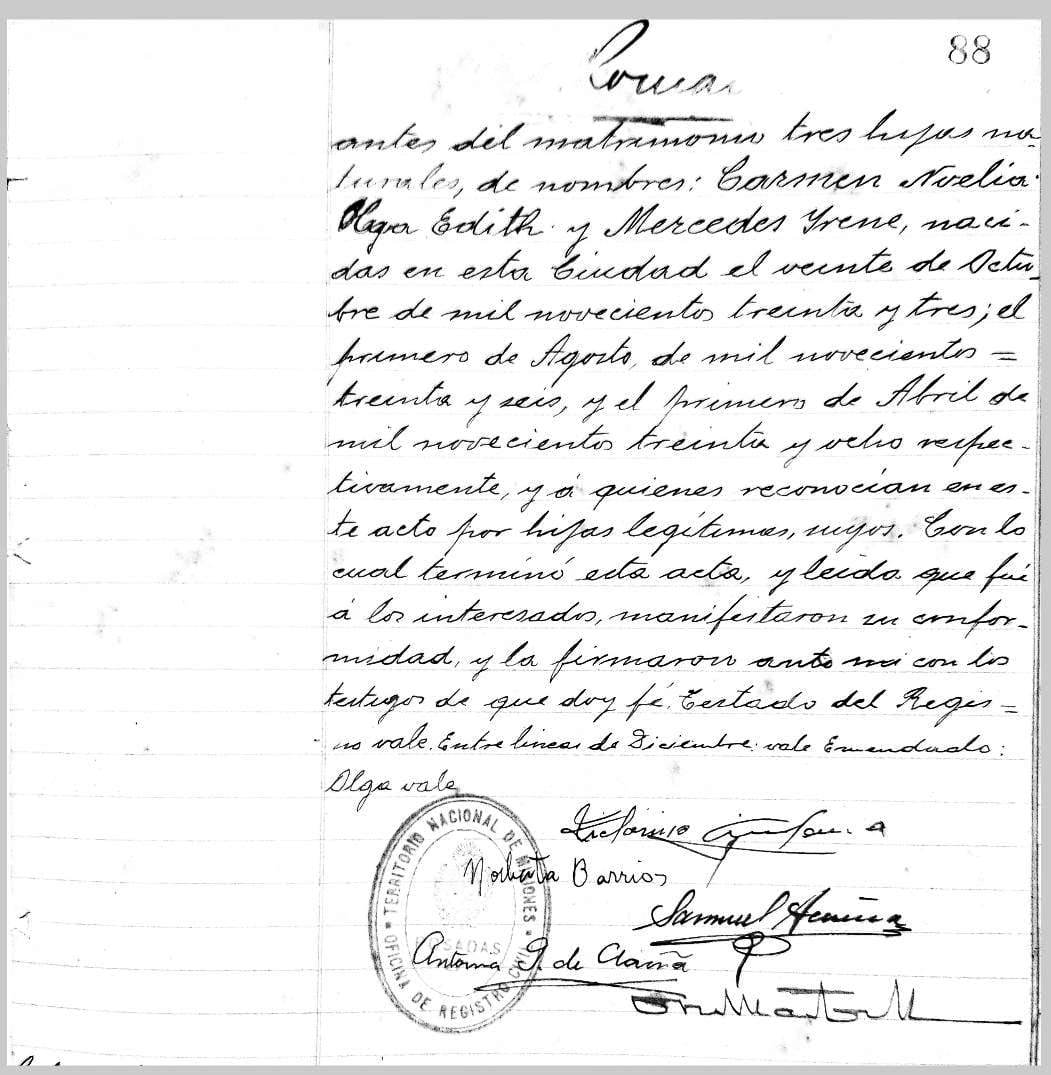 88
antes del matrimonio tres hijas na-
turales, de nombres: Carmen Noelia.
Olga Edith y Mercedes Yrene, naci-
das en esta Ciudad el veinte de Octu-
bre de mil novecientos treinta y tres; el
primero de Agosto, de mil novecientos =
treinta y seis, y el primero de Abril de
mil novecientos treinta y ocho respec-
tivamente, y á quienes reconocían en es-
te acto por hijas legítimas, suyos. Con lo
cual terminó esta acta, y leida que fué
á los interesados, manifestaron su confor-
midad, y la firmaron ante mi con los
testigos de que doy fé. Testado del Regis =
no vale. Entre lineas de Diciembre: vale Emendado:
Olga vale
OFICINA DE REGISTRO CIVIL TERRITORIO NACIONAL DE MISIONES
POSADAS
Norberta Barrios
Samuel
Antonia G. de